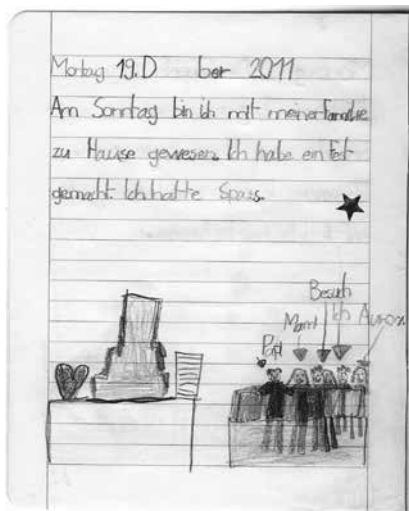 Montag 19. D ber 2011
Am Sonntag bin ich mit meiner Familie
zu Hause gewesen. Ich habe ein Fest
gemacht. Ich hatte Spass.
Besuch
Ich
Mami
Papi